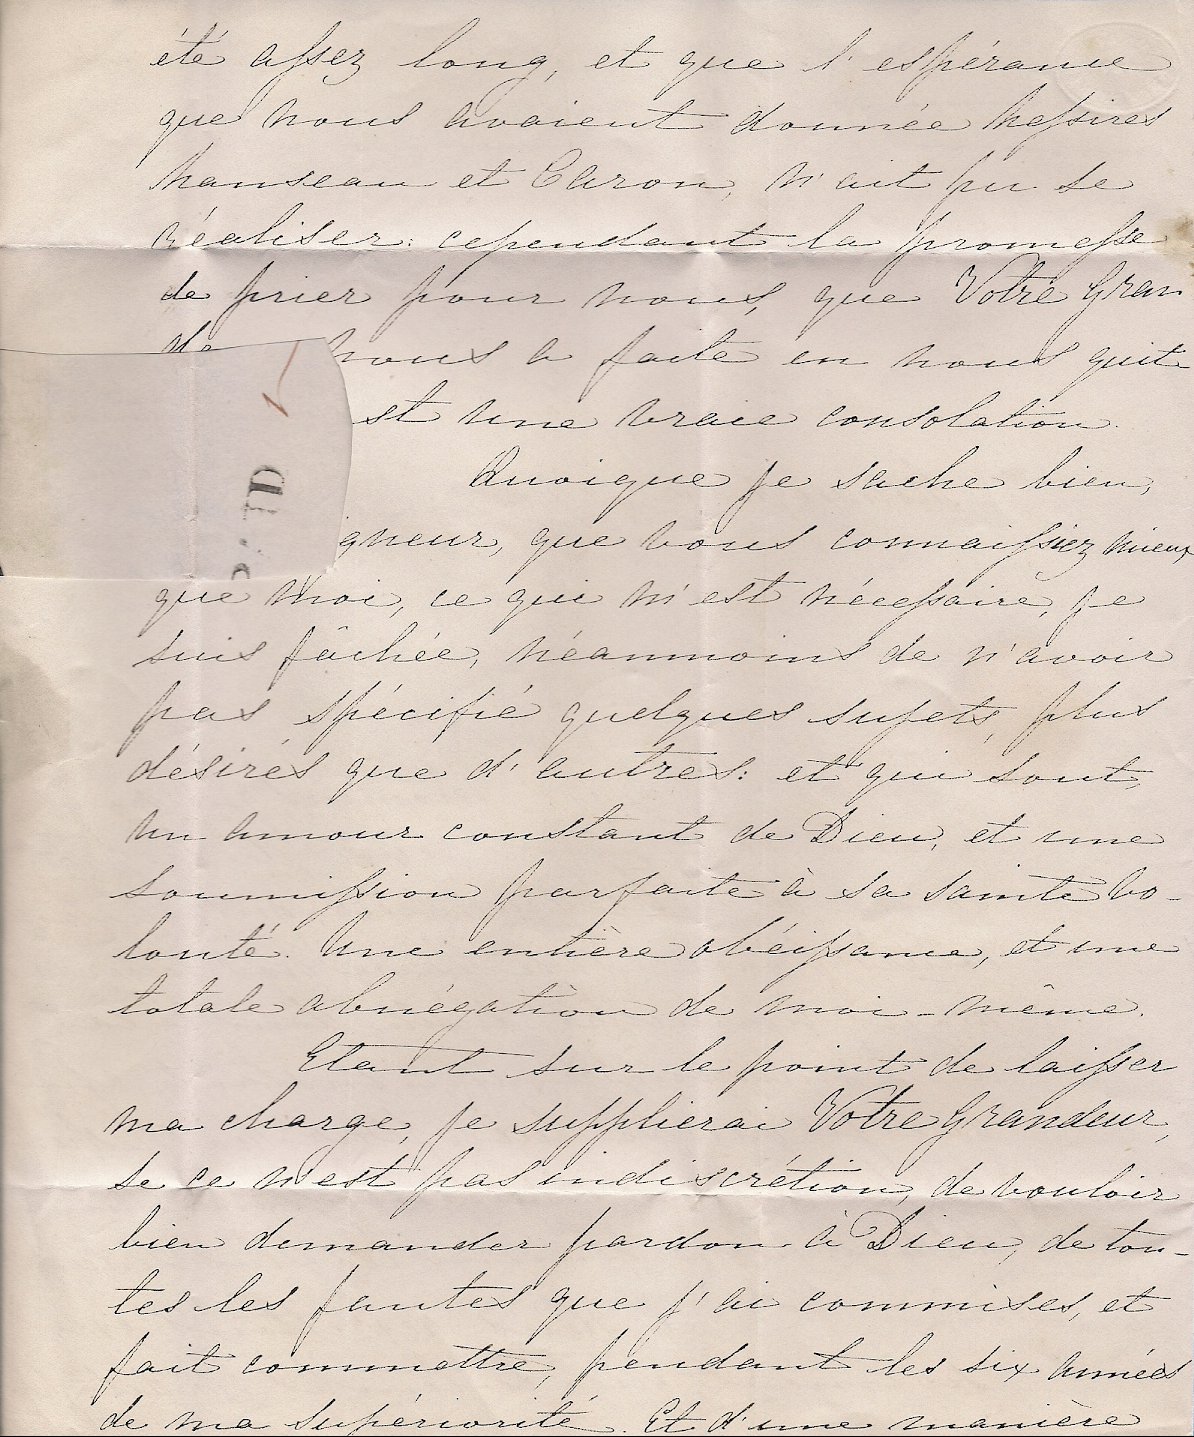 été assez long, et que l'espérance
que nous avaient donnée Messires
Manseau et Caron, n'ait pu se
réaliser: cependant la promesse
de prier pour nous, que Votre Gran
nous a faite en nous quit-
st une vraie consolation.
Quoique je sache bien,
igneur, que vous connaissiez mieux
que moi, ce qui m'est nécessaire, je
suis fâchée, néanmoins de n'avoir
pas spécifié quelques sujets, plus
désirés que d'autres: et qui sont,
un amour constant de Dieu, et une
soumission parfaite à sa sainte vo-
lonté. Une entière obéissance, et une
totale abnégation de moi-même.
Etant sur le point de laisser
ma charge, je supplierai Votre Grandeur,
se ce n'est pas indiscrétion, de vouloir
bien demander pardon à Dieu, de tou-
tes les fautes que j'ai commises, et
fait commettre, pendant les six années
de ma supériorité. Et d'une manière